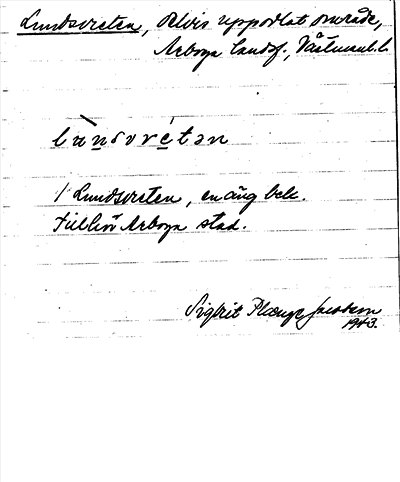 Lundsvreten, delvis uppodlat område,
Arboga landsf., Västmanl. l.
lùnsvré̀tən
1/ Lundsvreten, en äng bek.
Tillhör Arboga stad.
Sigbrit Plænge Jacobson
1943.